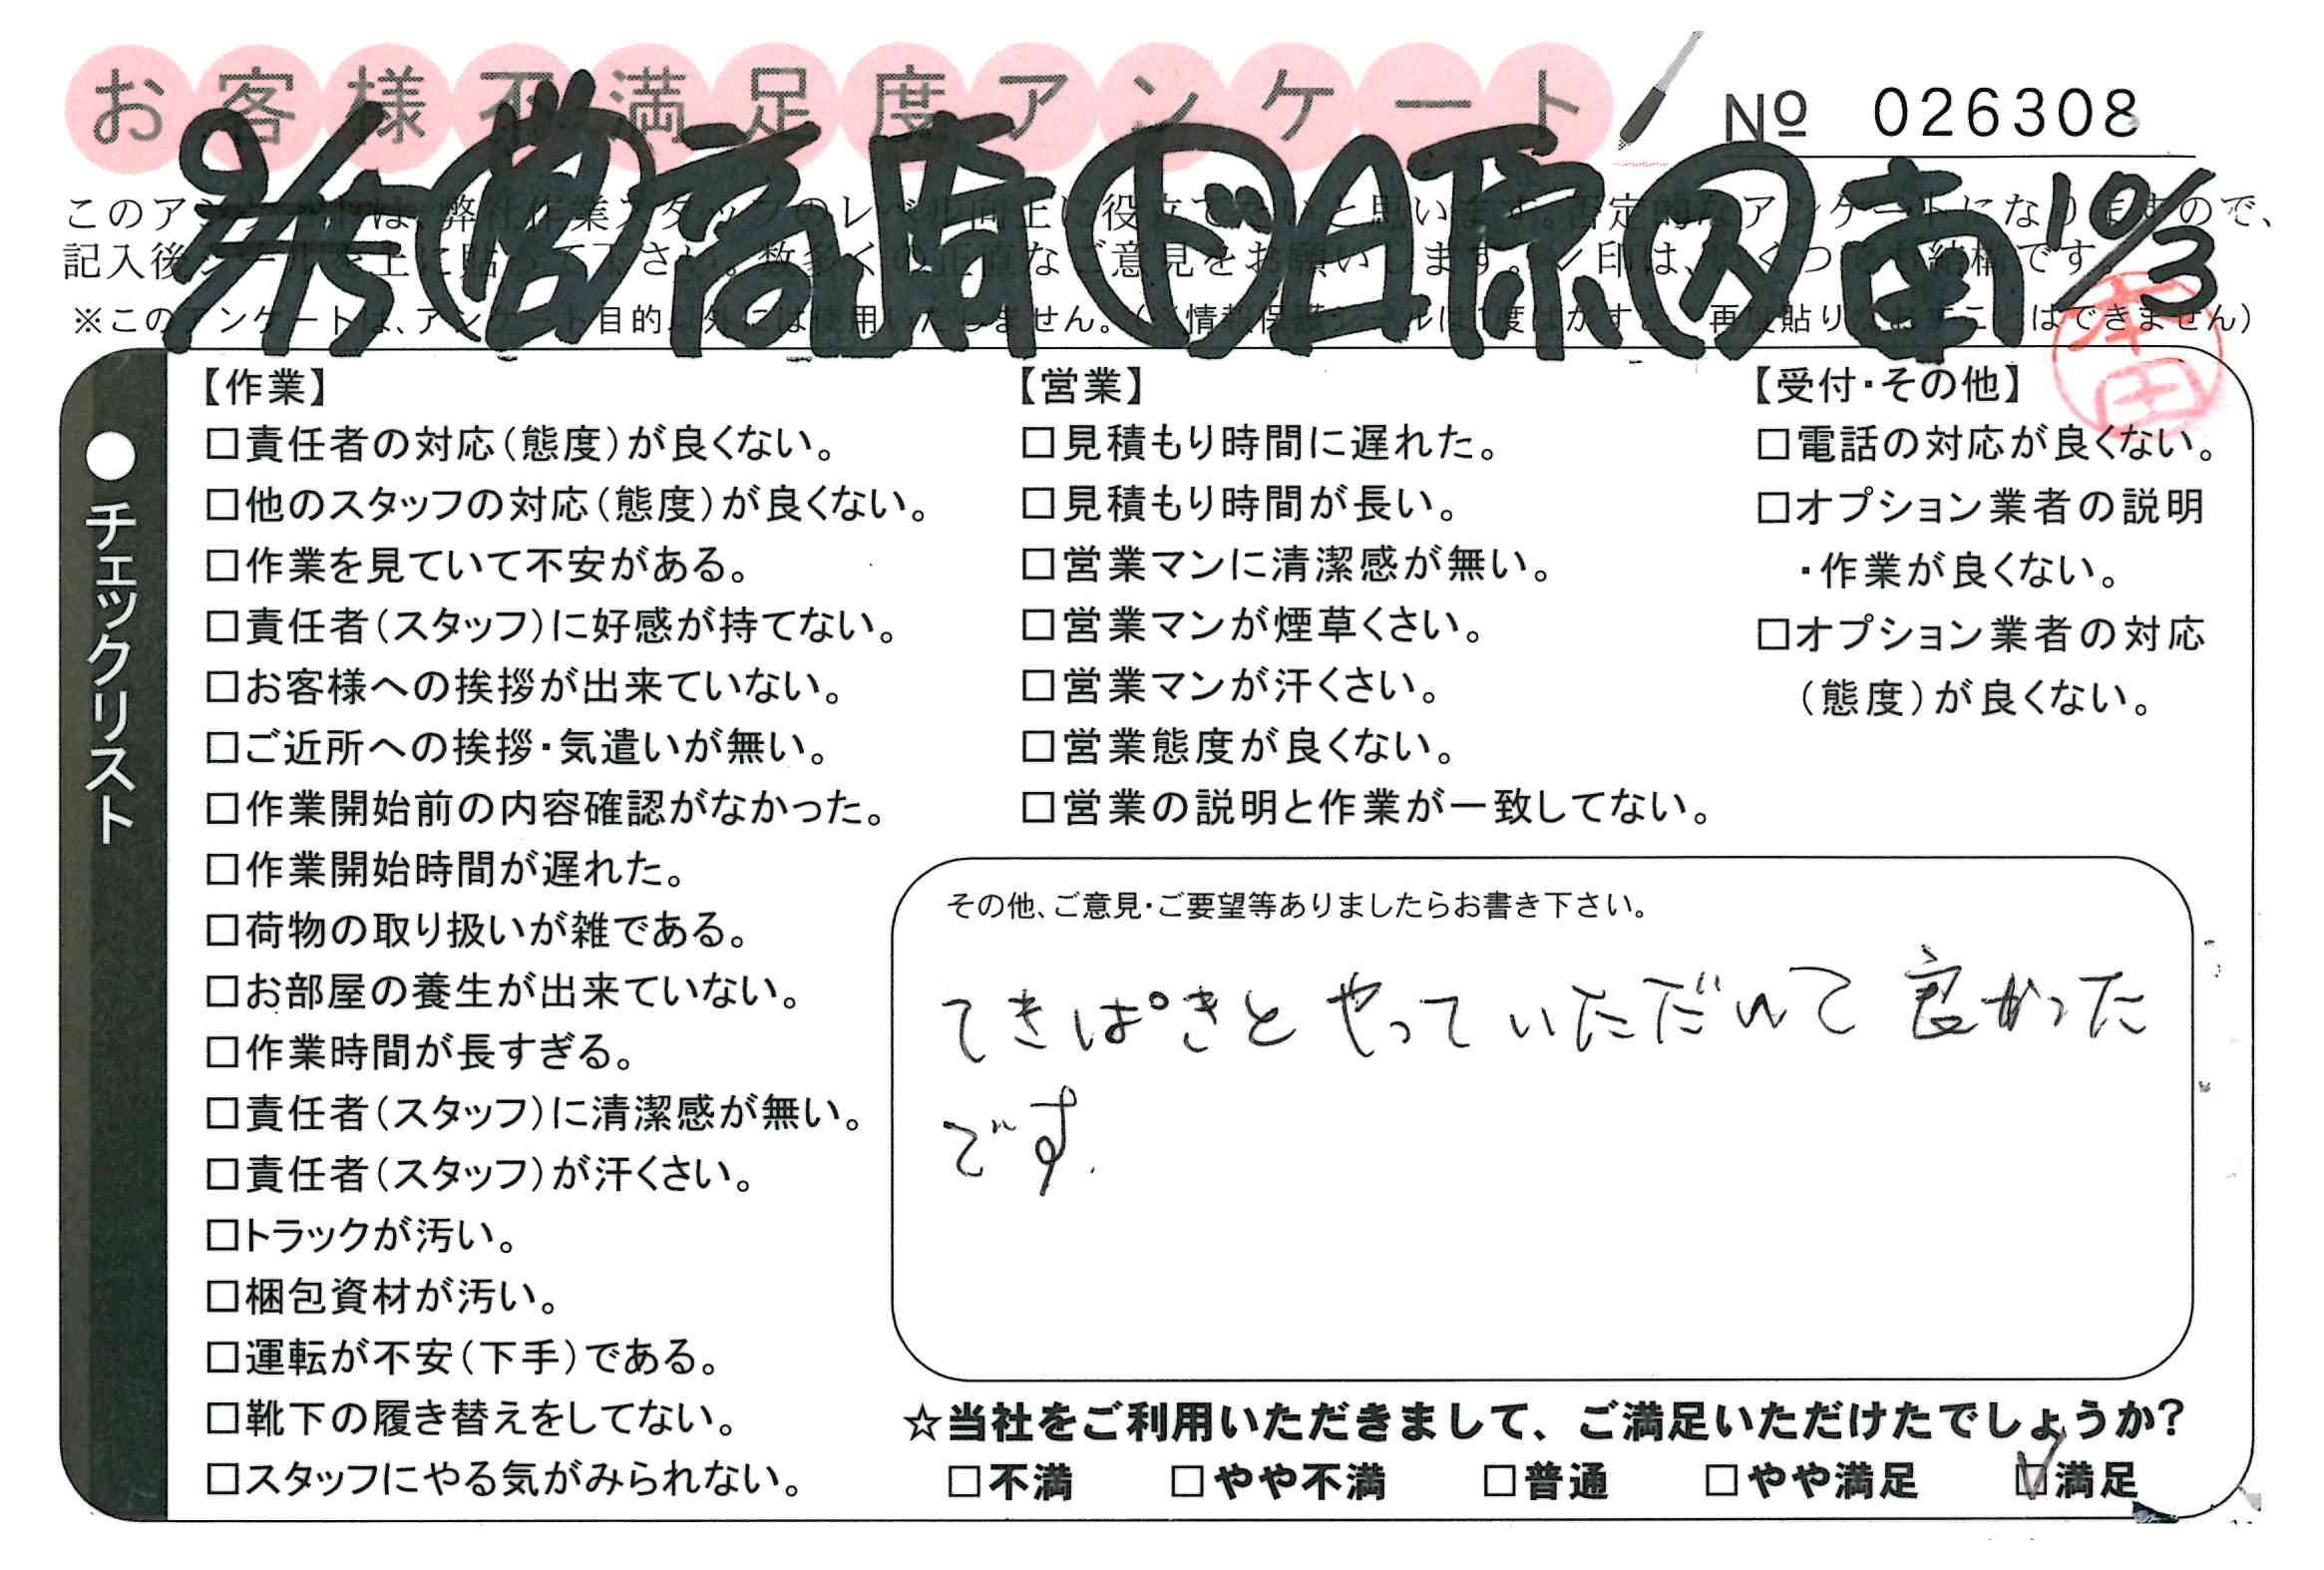 お客様不満足度アンケート
№ 026308
9/25 営 高崎 ド 日原 内 南 10/3
本田
【作業】
□責任者の対応(態度)が良くない。
□他のスタッフの対応(態度)が良くない。
□作業を見ていて不安がある。
□責任者(スタッフ)に好感が持てない。
□お客様への挨拶が出来ていない。
□ご近所への挨拶・気遣いが無い。
□作業開始前の内容確認がなかった。
□作業開始時間が遅れた。
□荷物の取り扱いが雑である。
□お部屋の養生が出来ていない。
□作業時間が長すぎる。
□責任者(スタッフ)に清潔感が無い。
□責任者(スタッフ)が汗くさい。
□トラックが汚い。
□梱包資材が汚い。
□運転が不安(下手)である。
□靴下の履き替えをしてない。
□スタッフにやる気がみられない。
【営業】
□見積もり時間に遅れた。
□見積もり時間が長い。
□営業マンに清潔感が無い。
□営業マンが煙草くさい。
□営業マンが汗くさい。
□営業態度が良くない。
□営業の説明と作業が一致してない。
【受付・その他】
□電話の対応が良くない。
□オプション業者の説明
・作業が良くない。
□オプション業者の対応
(態度)が良くない。
●チェックリスト
その他、ご意見・ご要望等ありましたらお書き下さい。
てきぱきとやっていただいて良かった
です.
☆当社をご利用いただきまして、ご満足いただけたでしょうか?
□不満 □やや不満 □普通 □やや満足 ☑満足